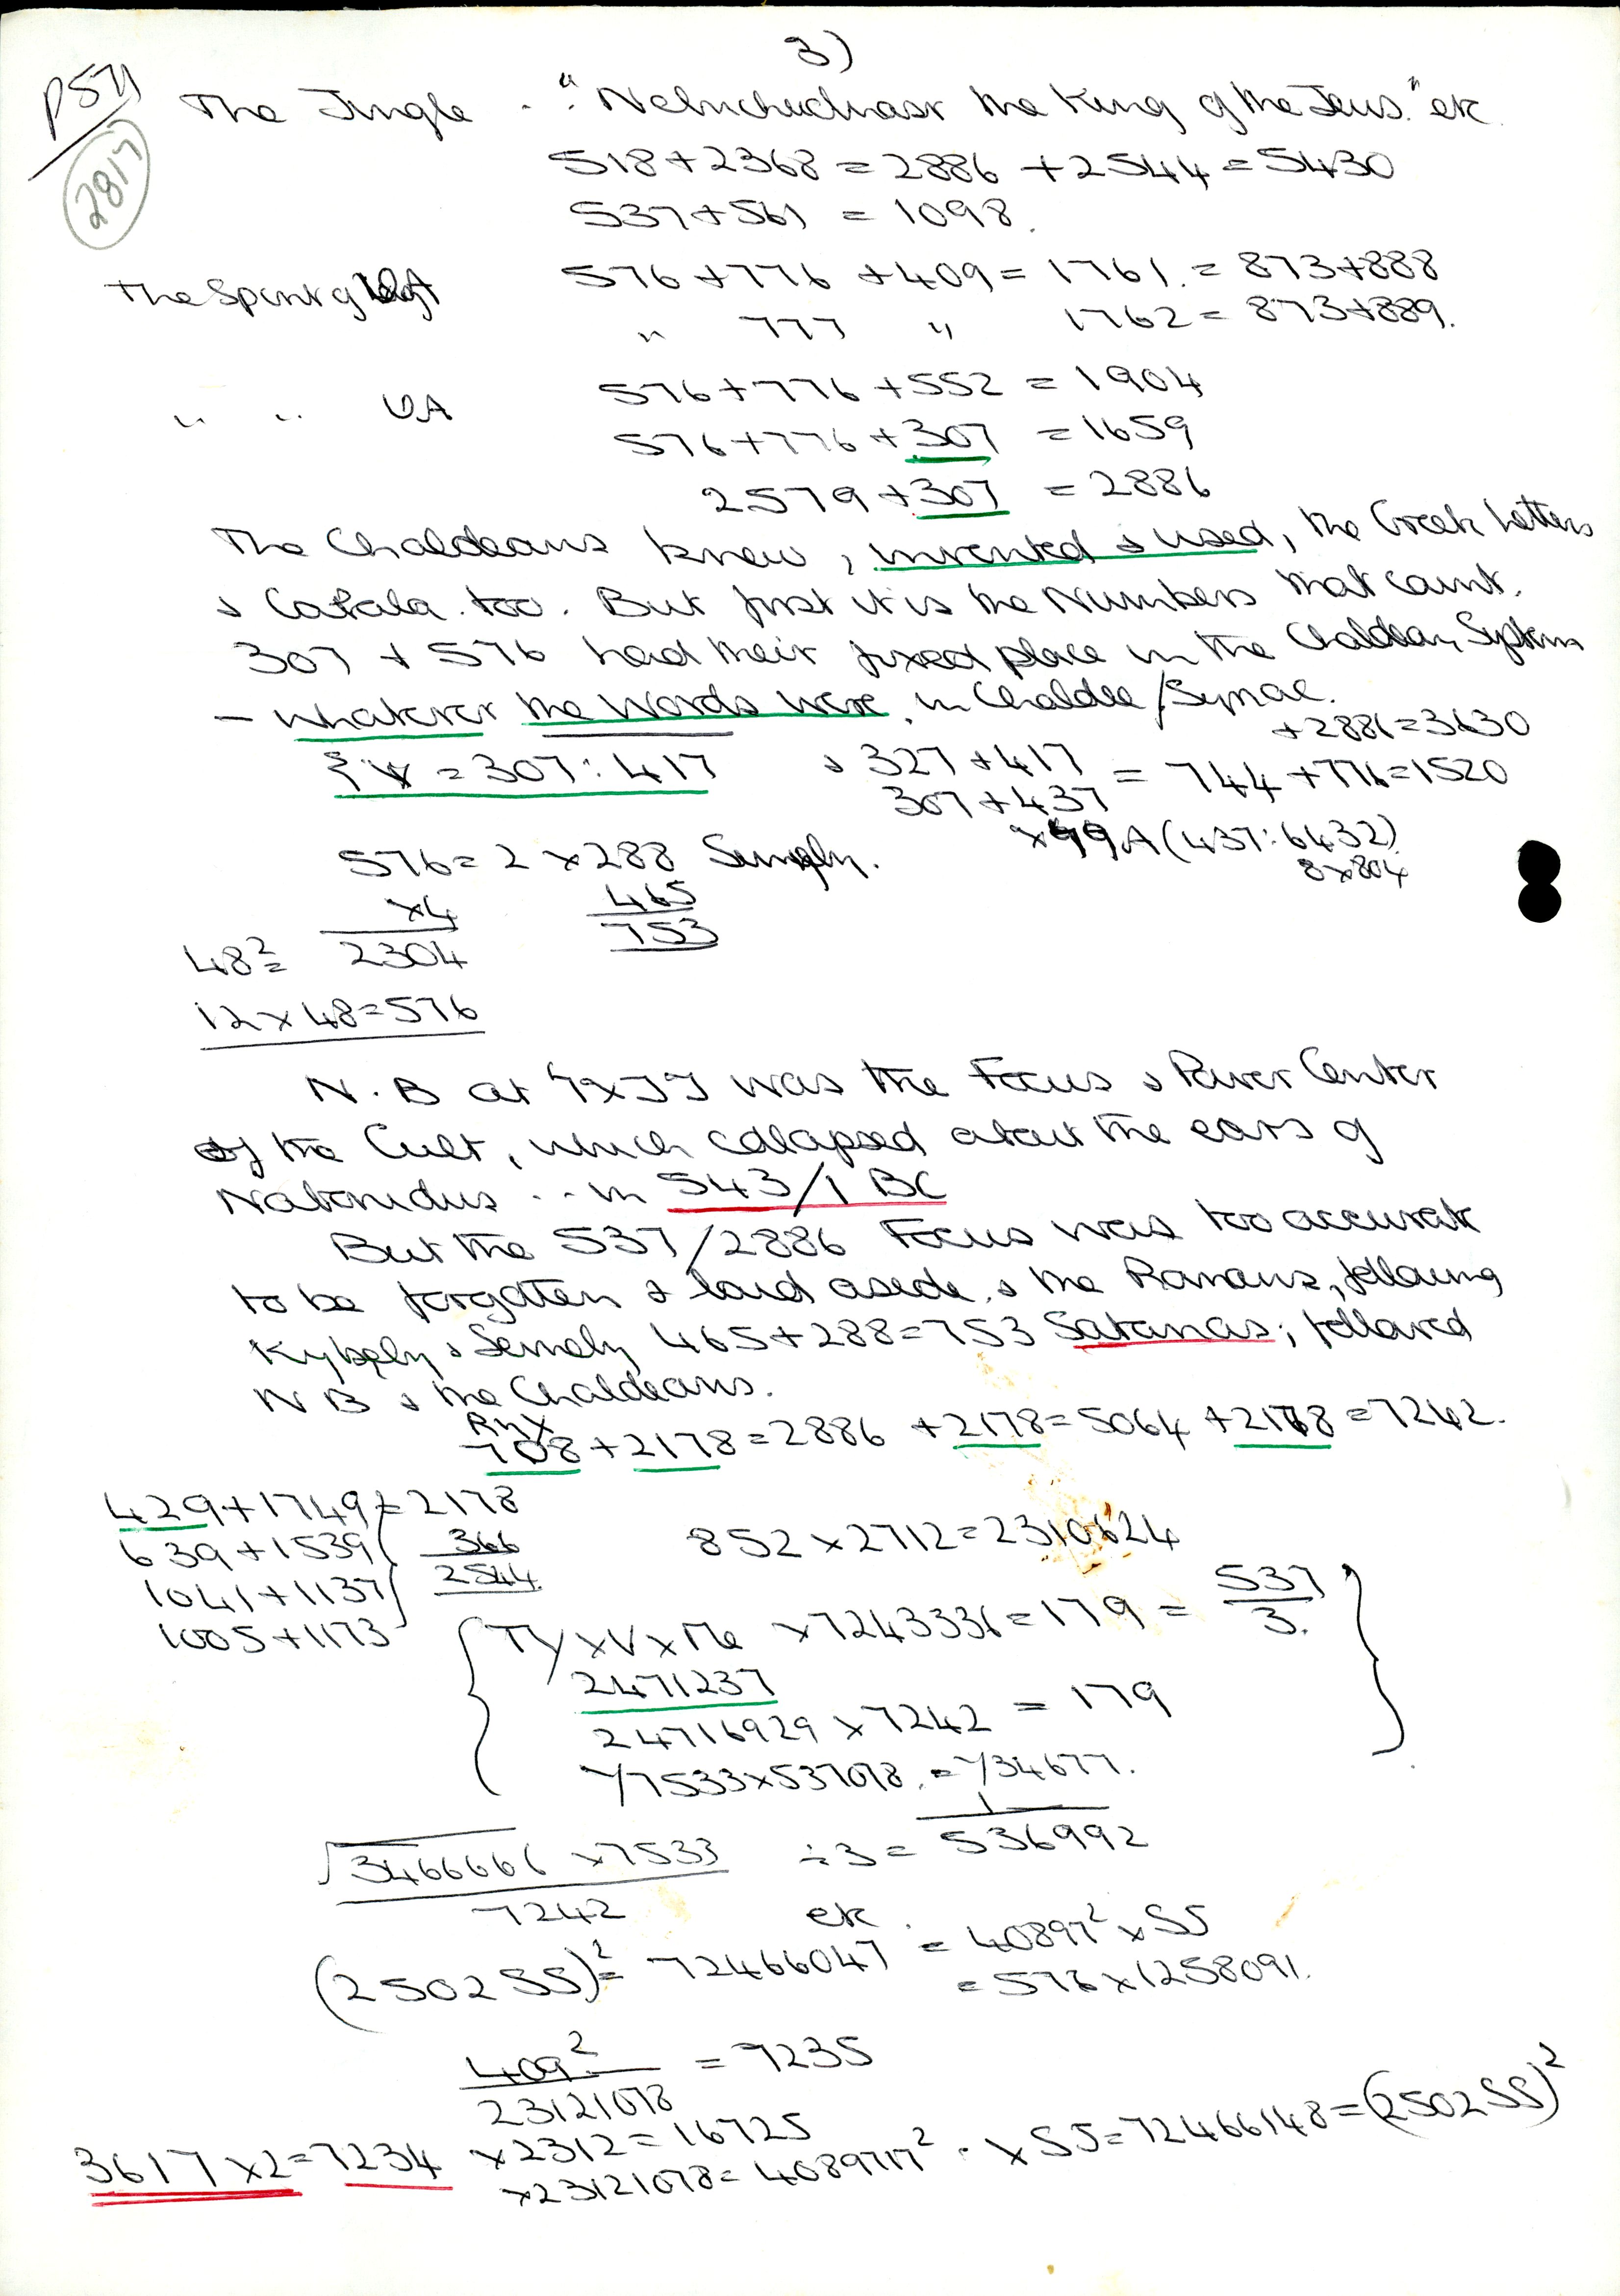 3)
P571
2817
The Jingle .. "Nebuchadnassr the King of the Jews." etc.
518+2368 = 2886 +2544 = 5430
537+561 = 1098.
The Spirit of
576 +776 +409 = 1761. = 873+888
" 777 " 1762 = 873+889.
" " UA 576+776 +552 = 1904
576+776 +307 = 1659
2579 +307 = 2886
The Chaldeans knew, invented & used, the Greek Letters
& Cabala too. But first it is the Numbers that count.
307 + 576 had their fixed place in the Chaldean Systems
- whatever the Words were, in Chaldee/Syriac.
+2886=3630
= 307 : 417 & 327 +417 = 744 +776=1520
307 +437
x49A (437:6432)
8x804
576 = 2 x 288 Semely.
x4 465
48²= 2304 753
12 x 48 = 576
N.B at was the Focus & Power Center
of the Cult, which collapsed about the ears of
Nabonidus .. in 543/1 BC
But the 537/2886 Focus was too accurate
to be forgotten & laid aside, & the Romans, following
Kybely & Semely 465+288=753 Satanas; followed
NB & the Chaldeans.
708+2178=2886 +2178=5064 +2178=7242.
429+1749 = 2178
639+1539 366
1041+1137 2544
1005+1173
852 x 2712 = 2310624
x7243336 = 179 = 537/3.
2471237
24716929 x 7242 = 179
√7533x537078 = √34677.
√3466666 x 7533 ÷3 = 1/536992
7242 etc.
(2502SS)² = 72466047 = 40897² x SS
= 576x1258091.
409²/23121078 = 7235
3617 x2=7234 x2312=16725
x23121078= 4089717² . x SS=72466148=(2502SS)²